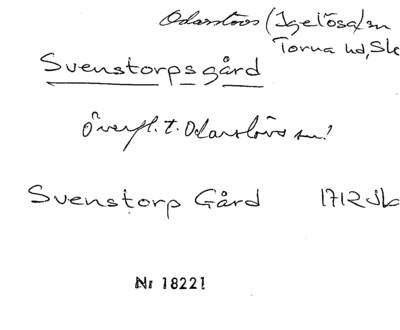 Odarslövs (Igelösa) sn
Torna hd, Sk
Svenstorpsgård
överfl. t. Odarslövs sn!
Svenstorp Gård 1712 Jb
Nr 18221